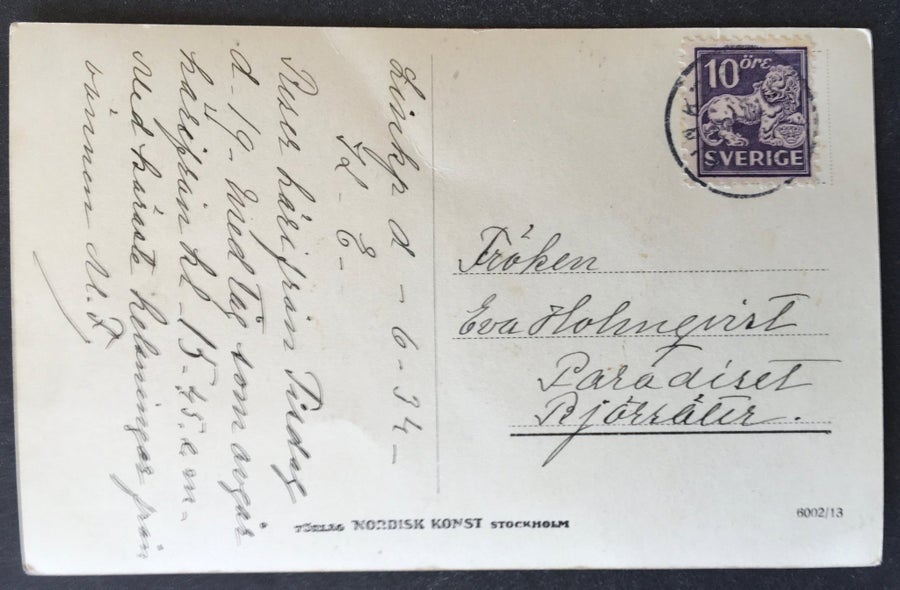 Linkp d - 6 - 34 -
K - E -
Reser härifrån Tisdag
d - 19 - Med tåg som avgår
härifrån kl - 15-45 e m -
Med kära hälsningar från
vännen M. F.
10 öre
SVERIGE
Fröken
Eva Holmqvist
Paradiset
Björsäter.
FÖRLAG NORDISK KONST STOCKHOLM
6002/13